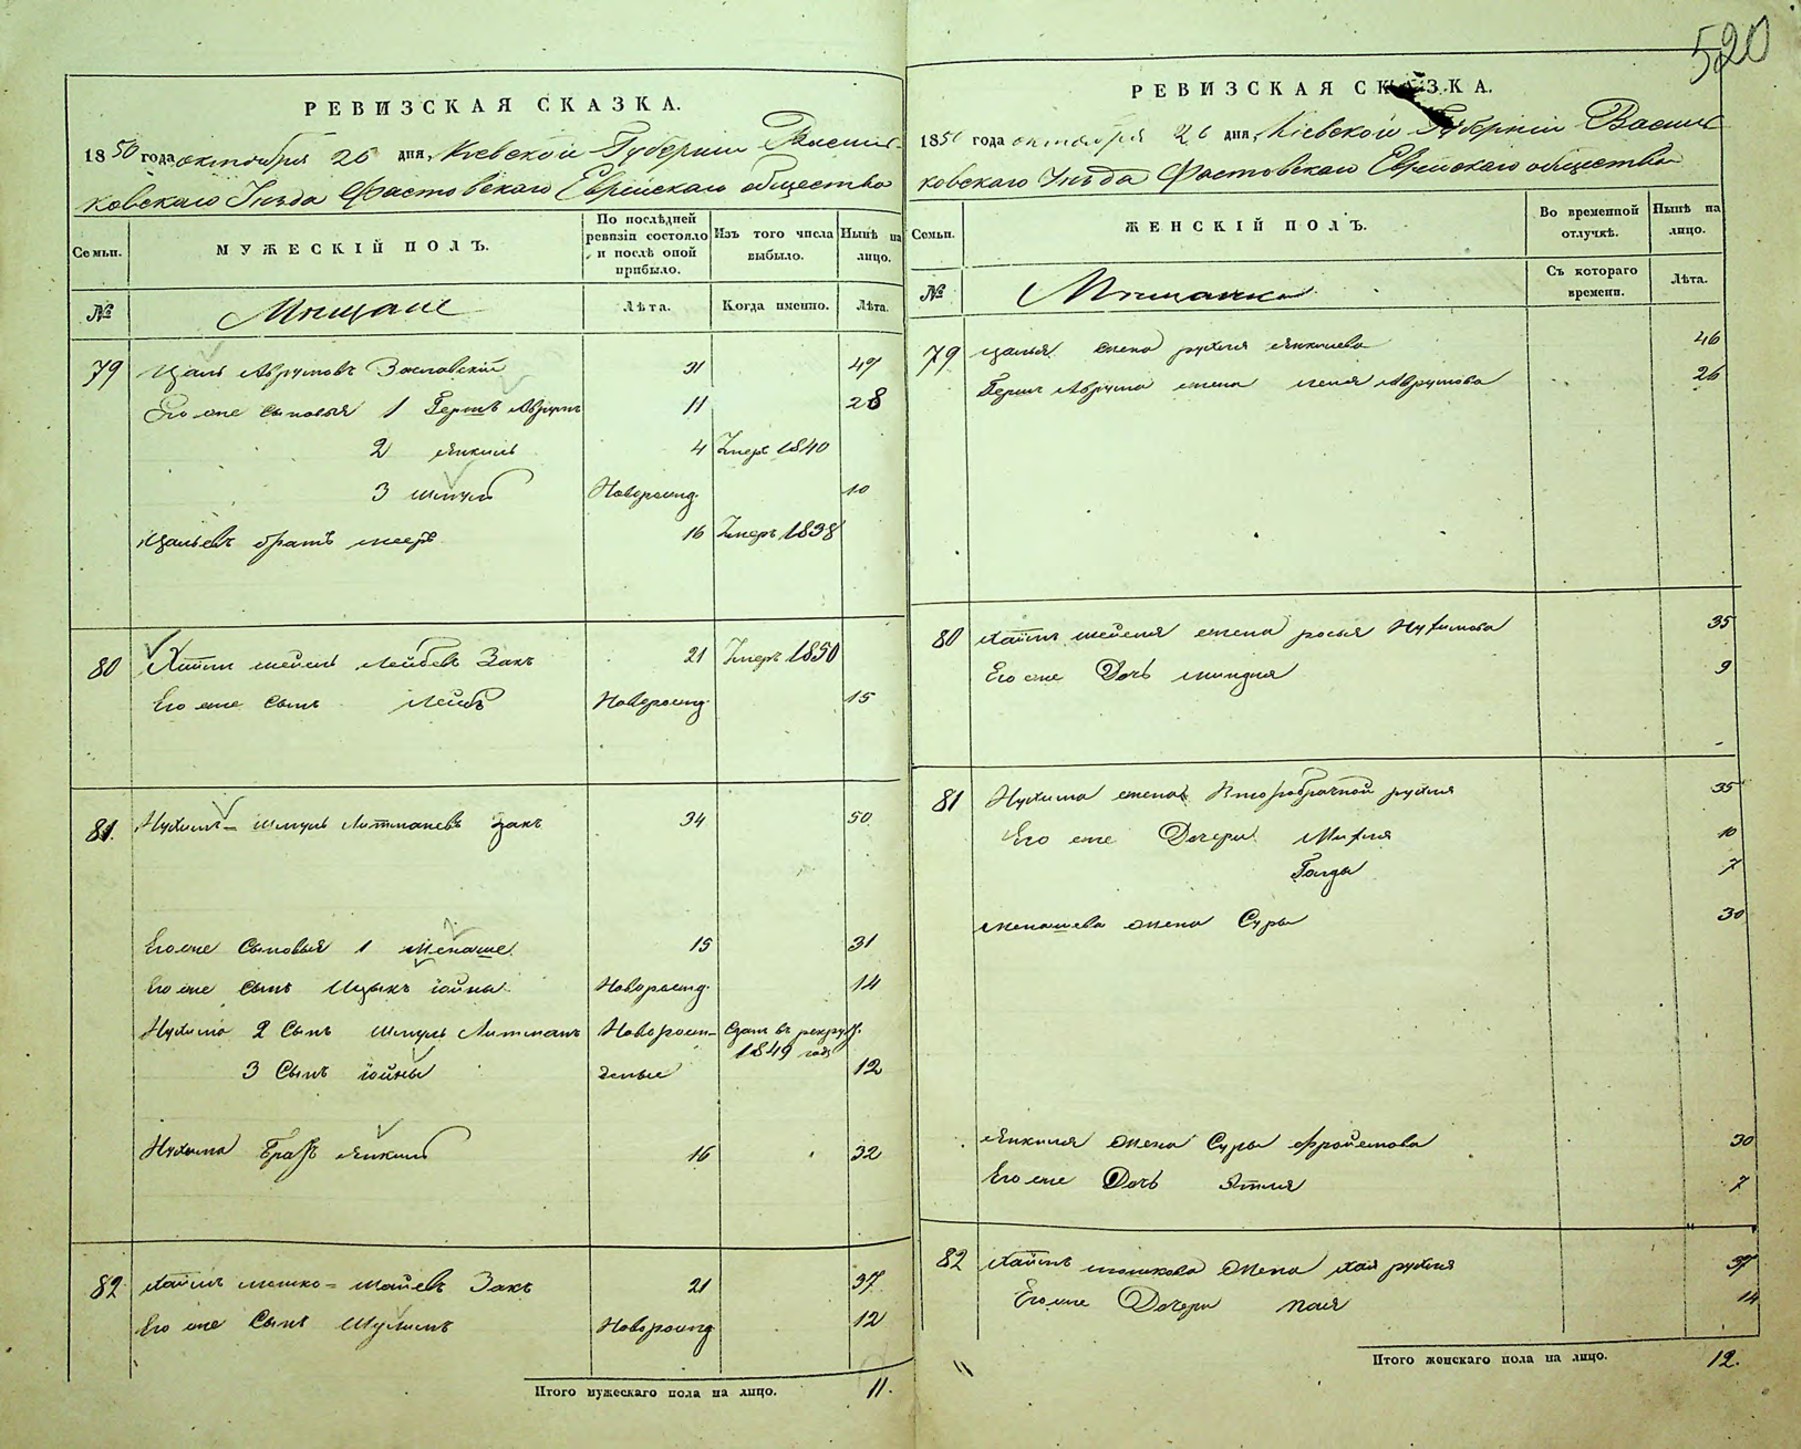 520
РЕВИЗСКАЯ СКАЗКА.
1850 года октября 26 дня, Кіевской Губерніи Василь-
ковскаго Уѣзда Фастовскаго Еврейскаго общества
Семьи.
МУЖЕСКІЙ ПОЛЪ.
По послѣдней ревизіи состояло и послѣ оной прибыло.
Изъ того числа выбыло.
Нынѣ на лицо.
№
Мѣщане
Лѣта.
Когда именно.
Лѣта.
79 Аврумовъ Заславскій 31 47
Его же сыновья 1 Гершъ Аврумъ 11 28
2 Янкель 4 Умеръ 1840
3 Шмуль Новорожд. 10
братъ 16 Умеръ 1838
80 Хаимъ Лейбовъ Закъ 21 Умеръ 1850
Его же сынъ Лейбъ Новорожд. 15
81. Нухимъ-Шмуль Литмановъ Закъ 34 50
Его же сыновья 1 Менаше 15 31
Его же сынъ Ицыкъ Іойны Новорожд. 14
Нухима 2 сынъ Шмуль Литманъ Новорож- Сданъ въ рекруты
1849 года
3 сынъ Іойны денные 12
Нухима братъ Янкель 16 32
82 Хаимъ Мошко- Закъ 21 37
Его же сынъ Новорожд 12
Итого мужескаго пола на лицо. 11.
РЕВИЗСКАЯ СКАЗКА.
1850 года октября 26 дня, Кіевской Губерніи Василь
ковскаго Уѣзда Фастовскаго Еврейскаго общества
Семьи.
ЖЕНСКІЙ ПОЛЪ.
Во временной отлучкѣ.
Нынѣ на лицо.
№
Мѣщанки
Съ котораго времени.
Лѣта.
79 жена Рухля Янкелева 46
Гершъ Аврума жена Аврумова 26
80 Хаимъ жена Нухимова 35
Его же дочь Миндля 9
81 Нухима жена Второбрачной Рухля 35
Его же дочери 10
Голда 7
Менашева жена Суры 30
Янкеля жена Суры 30
Его же дочь 7
82 Хаимъ Мошкова жена Хая Рухля 37
Его же дочери 14
Итого женскаго пола на лицо. 12.